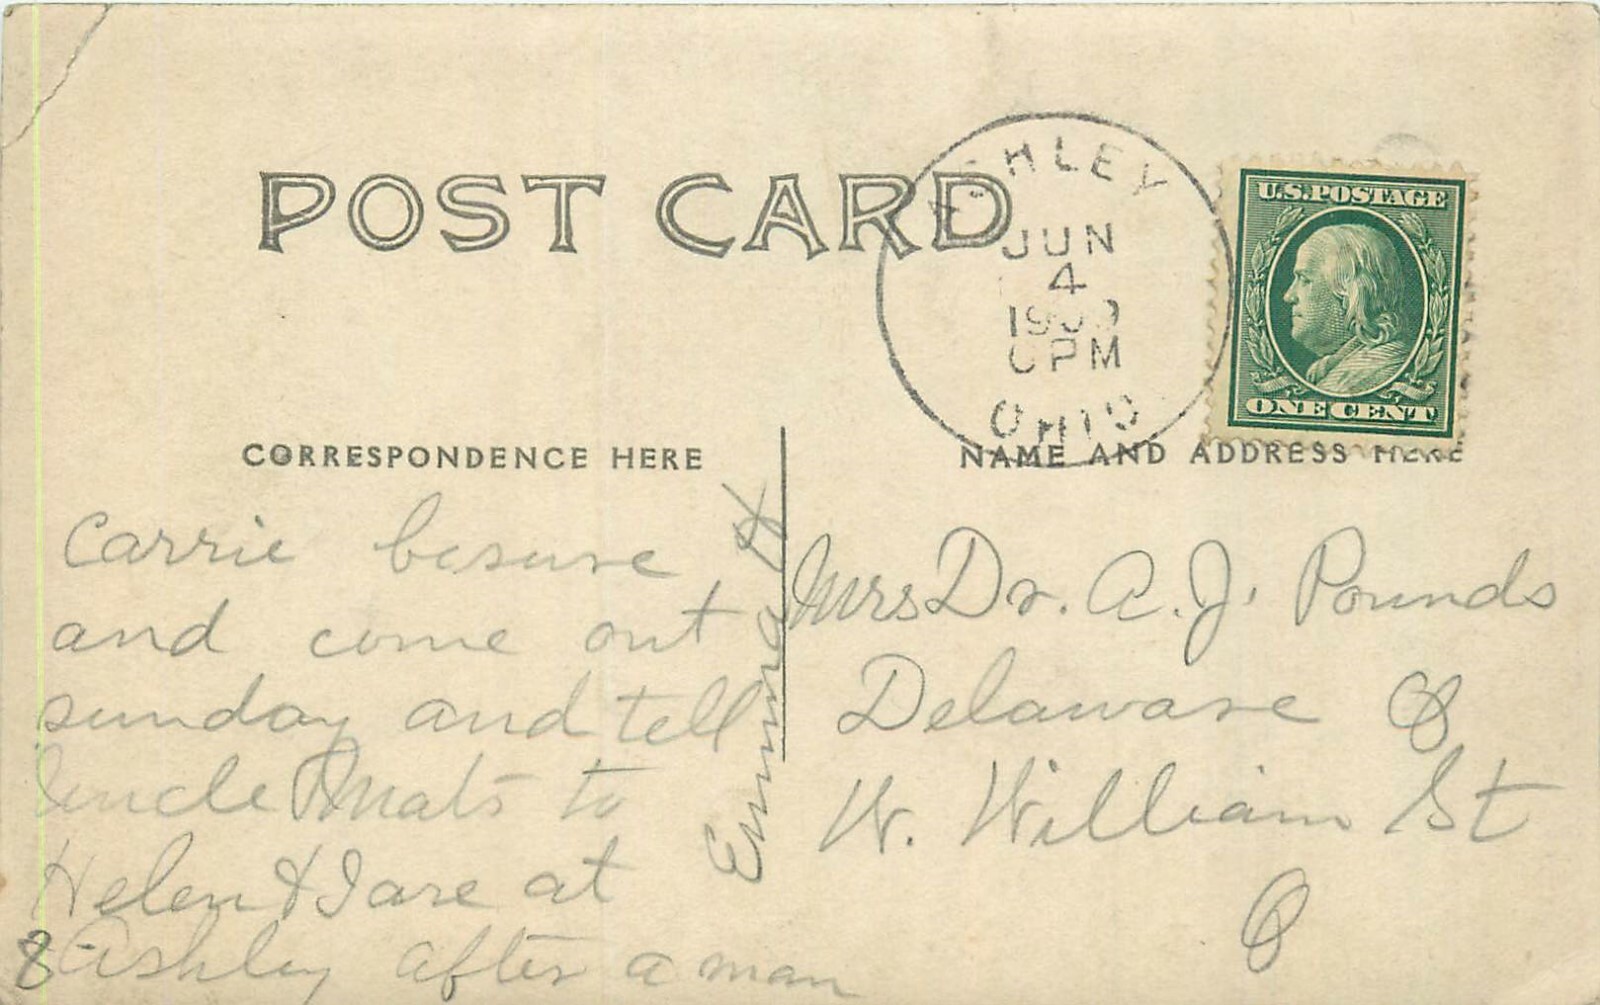 POST CARD
ASHLEY
JUN
4
1909
PM
OHIO
U.S.POSTAGE
ONE CENT
CORRESPONDENCE HERE
NAME AND ADDRESS HERE
Carrie besure
and come out
sunday and tell
uncle to
Helen & I are at
Ashley after a man
Emma H
Mrs Dr. A. J. Pounds
Delaware O
W. William St
O
8